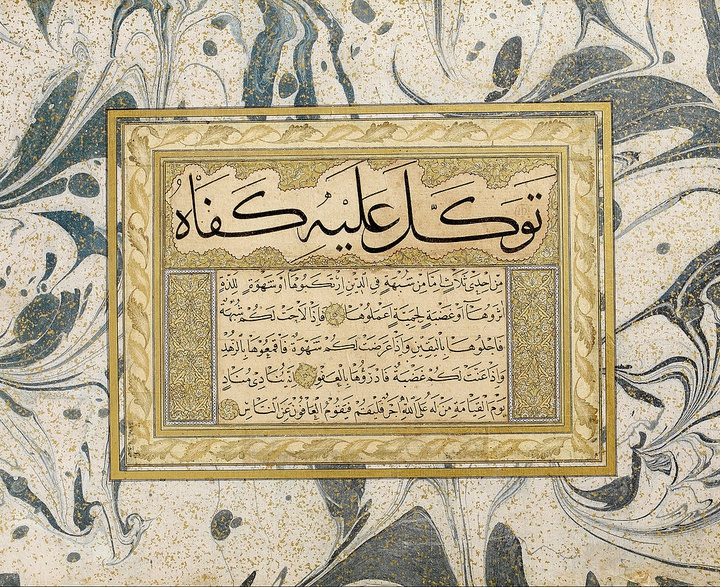 تَوَكَّلَ عَلَيْهِ كَفَاهُ
مِنْ احدى ثَلَاثٍ اِمَّا مِنْ شُبْهَةٍ فِي الدِّينِ ارْتَكَبُوهَا اَوْ شَهْوَةٍ لِلَذَّةٍ
اٰثَرُوهَا اَوْ غَضْبَةٍ لِحَمِيَّةٍ اَعْمَلُوهَا فَاِذَا لَاحَتْ لَكُمْ شُبْهَةٌ
فَاجْلُوهَا بِالْيَقِينِ وَاِذَا عَرَضَتْ لَكُمْ شَهْوَةٌ فَاقْمَعُوهَا بِالزُّهْدِ
وَاِذَا عَنَّتْ لَكُمْ غَضْبَةٌ فَادْرَؤُهَا بِالْعَفْوِ يُنَادِي مُنَادٍ
يَوْمَ الْقِيَامَةِ مَنْ لَهُ عَلَى اللهِ اَجْرٌ فَلْيَقُمْ فَيَقُومُ الْعَافُونَ عَنِ النَّاسِ